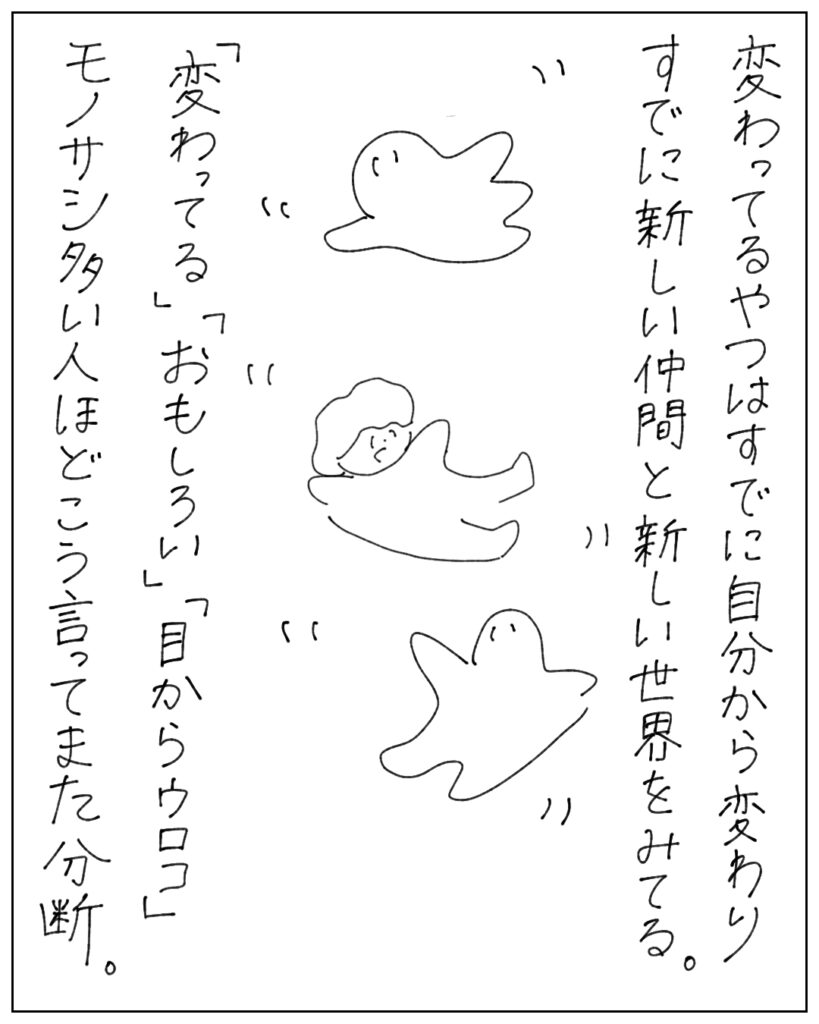 変わってるやつはすでに自分から変わり
すでに新しい仲間と新しい世界をみてる。
「変わってる」「おもしろい」「目からウロコ」
モノサシ多い人ほどこう言ってまた分断。